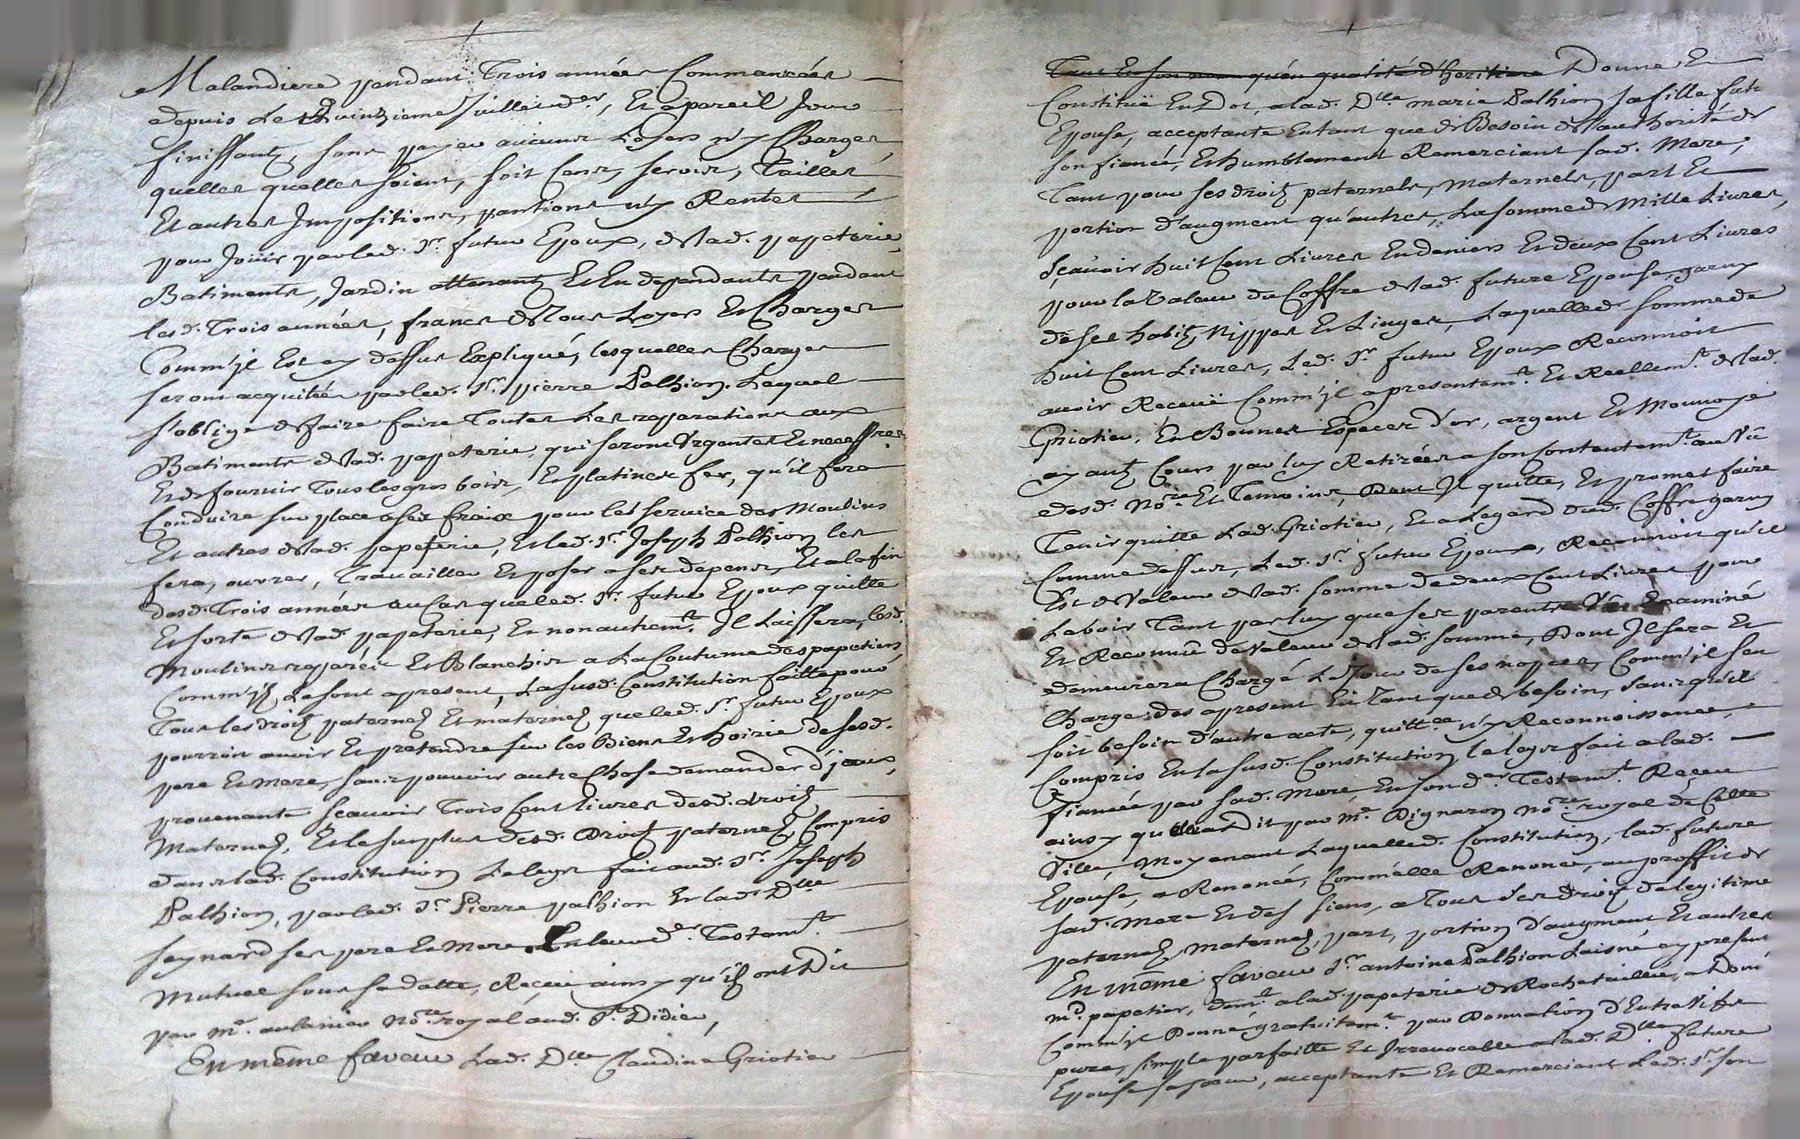 Malandiere pendant Trois années Commancées
depuis Le Quinzieme Juillet der, Et a pareil Jour
finissantz, sans payer aucuns Loyers ny Charges
quelles quelles soient, soit Cens, servis, Tailles
Et autres Impositions, pantions ny Rentes
pour Joüir par led. Sr. futur Epoux, de lad. papeterie
Batiments, Jardin attenantz Et En dependants pendant
lesd. Trois années, francs de Tous Loyers Et Charges
Comm'jl Est cy dessus Expliqué, lesquelles Charges
seront acquitées par led. Sr. pierre Palhion. Lequel
s'oblige de faire faire Toutes Les reparations aux
Batiments de lad. papeterie, qui seront Urgentes Et necessres
Et de fournir Tous les gros bois, Et platines fer, qu'il fera
Conduire sur place a ses fraix pour les service des Moulins
Et autres de lad. papeterie, Et led. Sr. Joseph Palhion les
fera, ouvrer, Travailler Et poser a ses depens, Et a la fin
desd. Trois années au Cas que led. Sr. futur Epoux quitte
Et sorte de lad. papeterie, Et non autremt. Il Laissera, lesd.
Moulins reparés Et Blanchis a La Coutume des papetiers
Comm'jlz Le font apresent, La susd. Constitution faitte pour
Tous les droitz paternelz Et maternelz que led. Sr. futur Epoux
pourroit avoir Et pretendre sur les Biens Et hoirie de sesd.
pere Et Mere, sans pouvoir autre Chose demander d'jceux,
provenante sçavoir Trois Cent livres desd. droitz
Maternelz, Et le surplus desd. Droitz paternelz, Compris
dans lad. Constitution Le legs fait aud. Sr. Joseph
Palhion, par led. Sr. Pierre palhion Et lad. Dlle
seynard ses pere Et Mere En leur dr. Testamt.
Mutuel sous sa datte, Reçeu ainsy qu'jlz ont Dit
par Me. aulanier Nore. royal aud. St. Didier,
En même faveur Lad. Dlle Claudine Griotier
Tant En son nom qu'en qualité d'heritiere Donne Et
Constitüe En Dot, a lad. Dlle marie Palhion sa fille futr
Epouse, acceptante Entant que de Besoin de l'authorité de
son fiancé, Et humblement Remerciant sad. Mere,
Tant pour ses droitz paternels, Maternels, part Et
portion d'augment qu'autres, La somme de Mille Livres,
sçavoir huit Cent Livres En deniers Et deux Cent Livres
pour la Valeur du Coffre de lad. future Epouse, garny
de ses habitz, Nippes Et Linges, Laquelle somme de
huit Cent Livres, Led. Sr. futur Epoux Reconnoit
avoir Reçeuë Comm'jl a presentemt. Et Reellemt. de lad.
Griotier, En Bonnes Especes d'or, argent Et Monnoye
ayantz Cours par luy Retirées a son Contentemt. au Vû
desd. Nore. Et Temoins, Dont Il quitte, Et promet faire
Tenir quitte Lad. Griotier, Et a Legard dud. Coffre garny
Comme dessus, Led. Sr. futur Epoux, Reconnoit qu'il
Est de Valeur de lad. somme de deux Cent Livres pour
Lavoir Tant par luy que ses parents Vû Examiné
Et Reconnu de Valeur de lad. somme, Dont Il sera Et
demeurera Chargé Le Jour de ses nopces, Comm'jl sen
Charge des apresent En Tant que de besoin, sans qu'il
soit besoin d'autre acte, quittce ny Reconnoissance,
Compris En la susd. Constitution le legs fait a lad.
fiancée par sad. Mere En son der Testamt. Reçeu
ainsy qu'elle a Dit par Me. Dignaron Nore royal de Cette
Ville, Moyenant Laquelle d. Constitution, lad. future
Epouse, a Renoncé, Comm'elle Renonce, au proffit de
sad. Mere Et des siens, a Tous ses Droitz de legitime
paternelz, maternelz, part, portion d'augment Et autres
En même faveur Sr. antoine Palhion Laisné cy present
md. papetier, demt. a lad. papeterie de Rochetaillée, a Doné
Comm'jl Donne, gratuitemt. par Donnation d'Entre Vifs
pure, simple parfaitte Et Irrevocable a lad. Dlle future
Epouse sa sœur, acceptante Et Remerciant Led. Sr. son